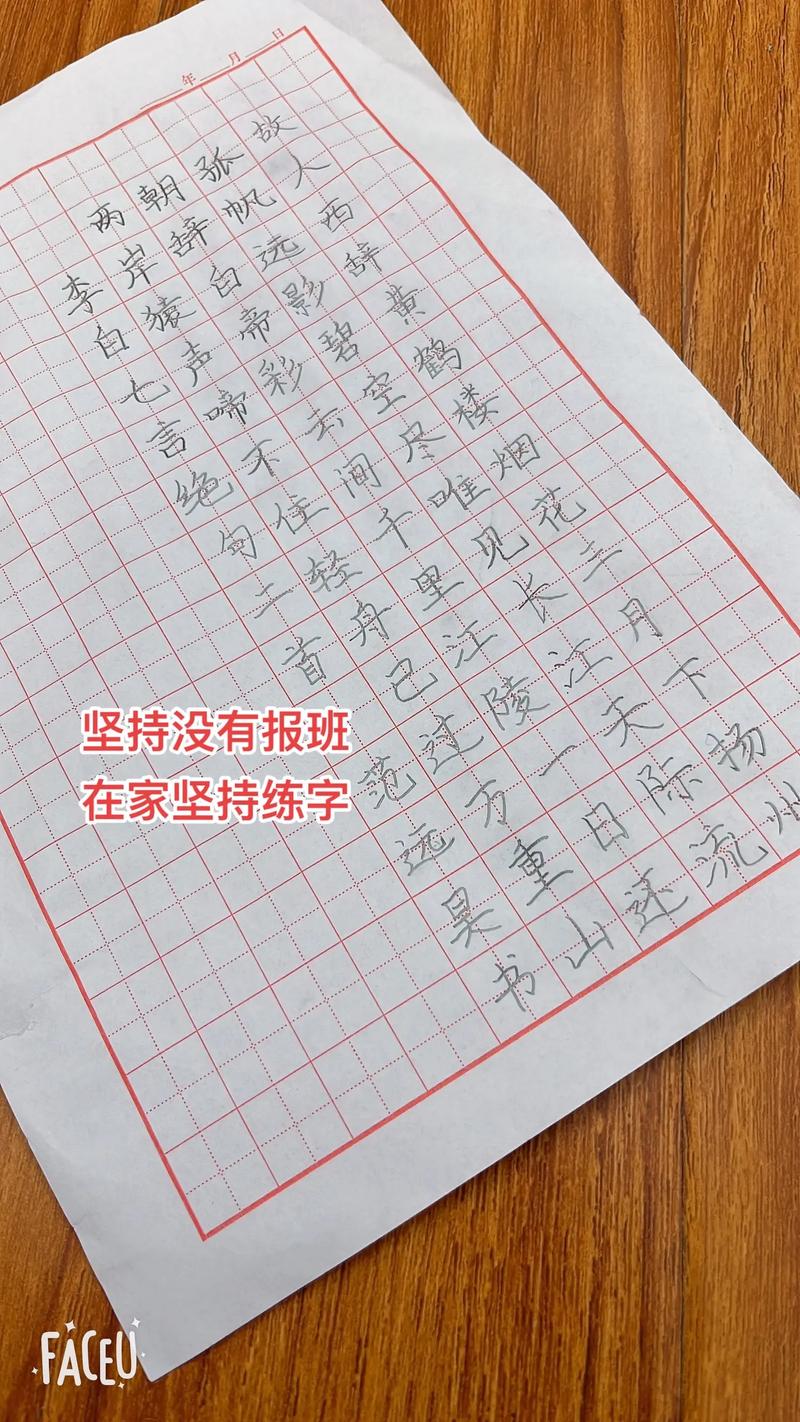 年 月 日
故人西辞黄鹤楼烟花三月下扬州
孤帆远影碧空尽唯见长江天际流
朝辞白帝彩云间千里江陵一日还
两岸猿声啼不住轻舟已过万重山
李白七言绝句二首 范远昊书
坚持没有报班
在家坚持练字
FACEU